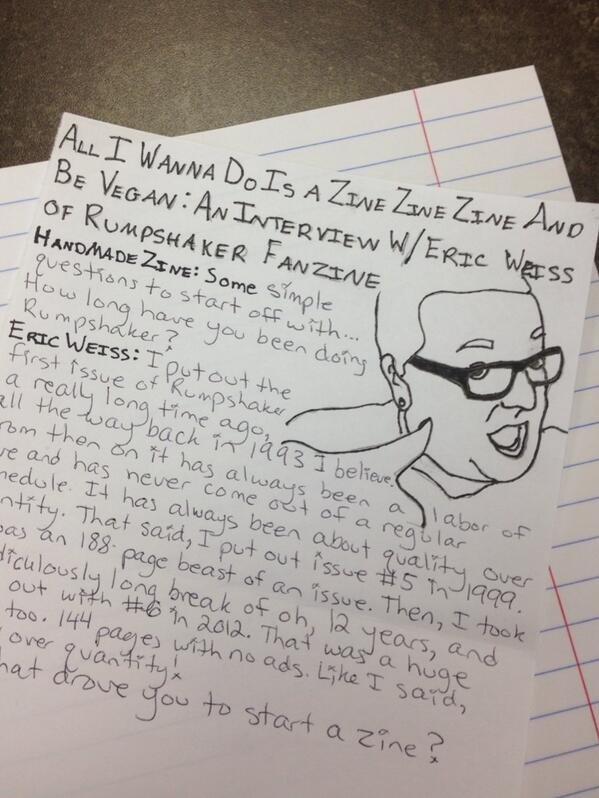 All I Wanna Do Is a Zine Zine Zine And
Be Vegan: An Interview w/ Eric Weiss
of Rumpshaker Fanzine
HandmadeZine: Some simple
questions to start off with...
How long have you been doing
Rumpshaker?
Eric Weiss: I put out the
first issue of Rumpshaker
a really long time ago,
all the way back in 1993 I believe.
rom then on it has always been a labor of
ve and has never come out of a regular
hedule. It has always been about quality over
ntity. That said, I put out issue #5 in 1999.
was an 188-page beast of an issue. Then, I took
diculously long break of oh, 12 years, and
out with #6 in 2012. That was a huge
too. 144 pages with no ads. Like I said,
over quantity!
hat drove you to start a zine?